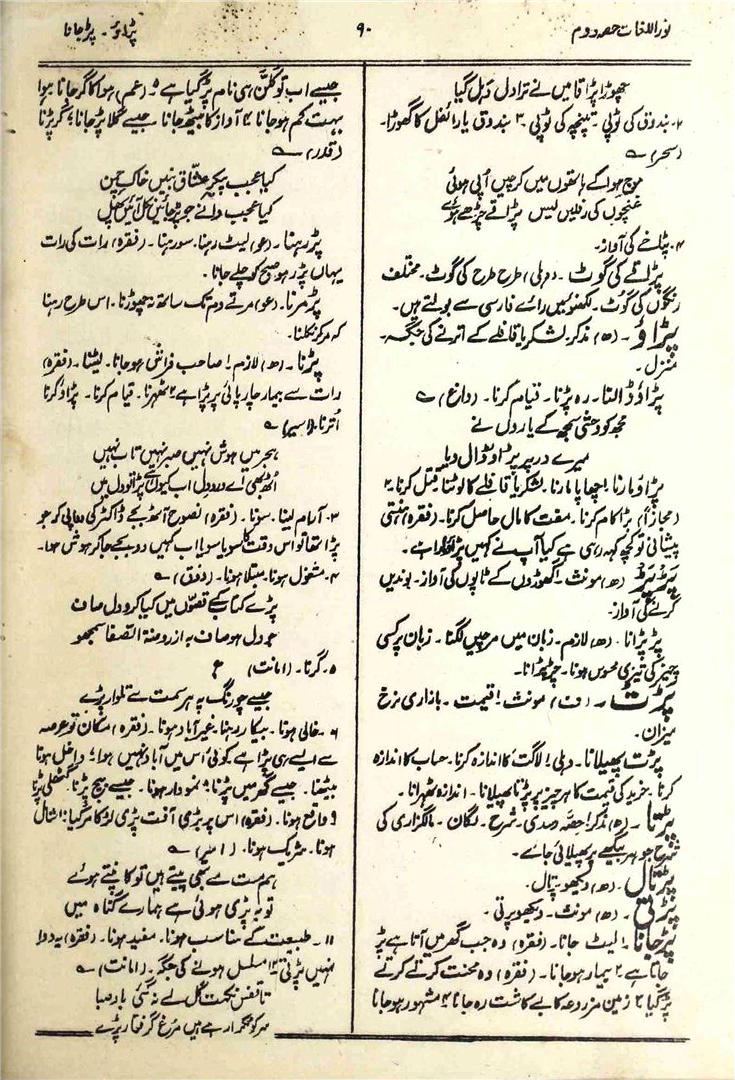 نور اللغات حصہ دوم
۹۰
پڑاؤ ۔ پڑجانا
چھوڑا پڑاقا میں نے ترا دل دہل گیا
۲۔ بندوق کی ٹوپی ۔ تپنچہ کی ٹوپی ۔ ۳ بندوق یا رائفل کا گھوڑا۔
(سحر) ؎
موج ہوا کے ہاتھوں میں کرچیں اُپی ہوئی
غنچوں کی رفلیں لیس پڑاقے چڑھے ہوئے
۴۔ پٹاخے کی آواز۔
پڑاقے کی گوٹ ۔ (دہلی) طرح طرح کی گوٹ۔ مختلف
رنگوں کی گوٹ۔ لکھنؤ میں رائے فارسی سے بولتے ہیں۔
پڑاؤ ۔ (ھ) مذکر۔ لشکر یا قافلے کے اترنے کی جگہ۔
منزل۔
پڑاؤ ڈالنا۔ رہ پڑنا۔ قیام کرنا۔ (داغ) ؎
مجھ کو وحشی سمجھ کے یاروں نے
میرے در پر پڑاؤ ڈال دیا
پڑاؤ مارنا۔ ۱ چھاپا مارنا۔ لشکر یا قافلے کا لوٹنا قتل کرنا۔ ۲
(مجازاً) بڑا کام کرنا۔ مفت کا مال حاصل کرنا۔ (فقرہ) ہنستی
پیشانی تو کچھ کہہ رہی ہے کیا آپ نے کہیں پڑاؤ مارا ہے۔
پڑپڑ (ھ) مونث۔ ۱ گھوڑوں کے ٹاپوں کی آواز۔ بوندیں
گرنے کی آواز۔
پڑپڑانا۔ (ھ) لازم۔ زبان میں مرچیں لگنا۔ زبان پر کسی
چیز کی تیزی محسوس ہونا۔ چڑچڑانا۔
پڑت ۔ (ف) مونث۔ ۱ قیمت۔ بازاری نرخ
میزان۔
پڑت پھیلانا۔ دہلی۔ ۱ لاگت کا اندازہ کرنا۔ حساب کا اندازہ
کرنا۔ خرید کی قیمت کا ہر چیز پر پڑتا پھیلانا۔ اندازہ ٹھہرانا۔
پڑتا ۔ (ھ) مذکر۔ ۱ حصّہ رسدی۔ شرح۔ لگان۔ مالگزاری کی
شرح جو ہر بیگھے پر پھیلائی جائے۔
پڑتال ۔ (ھ) دیکھو پرتال۔
پڑتی ۔ (ھ) مونث۔ دیکھو پرتی۔
پڑجانا۔ ۱ لیٹ جانا۔ (فقرہ) وہ جب گھر میں آتا ہے پڑ
جاتا ہے ۲ بیمار ہوجانا۔ (فقرہ) وہ محنت کرتے کرتے
پڑ گیا ۳ زمین مزروعہ کا بے کاشت رہ جانا ۴ مشہور ہوجانا
جیسے اب تو کلّن ہی نام پڑ گیا ہے ۵ (عم) ہوا کا گرجانا ہوا
بہت کم ہوجانا ۶ آواز کا بیٹھ جانا جیسے گلا پڑجانا؛ گر پڑنا
(قدر) ؎
کیا عجب پیکر عشّاق بنیں خاکِ چمن
کیا عجب دانے جو پڑجائیں نکل آئیں پھل
پڑ رہنا ۔ (عو) لیٹ رہنا۔ سو رہنا۔ (فقرہ) رات کی رات
یہاں پڑ رہو صبح کو چلے جانا۔
پڑ مرنا۔ (عو) مرتے دم تک ساتھ نہ چھوڑنا۔ اس طرح رہنا
کہ مر کر نکلنا۔
پڑنا۔ (ھ) لازم۔ ۱ صاحب فراش ہوجانا۔ لیٹنا۔ (فقرہ)
رات سے بیمار چارپائی پر پڑا ہے ۲ ٹھہرنا۔ قیام کرنا۔ پڑاؤ کرنا
اُترنا۔ (اسیر) ؎
ہجر میں ہوش نہیں صبر نہیں تاب نہیں
اُٹھ بھی اے درد دل اب کیوں ہے پڑا تو دل میں
۳۔ آرام لینا۔ سونا۔ (فقرہ) نصوح آٹھ بجے ڈاکٹر کی دوا پی کر جو
پڑا تھا تو اس وقت کا سویا سویا اب کہیں دو بجے جاکر ہوش ہوا۔
۴۔ مشغول ہونا۔ مبتلا ہونا۔ (ذوق) ؎
پڑے کتاب کے قصّوں میں کیا کرو دل صاف
جو دل ہو صاف بہ از روضۃ الصفا سمجھو
۵۔ گرنا۔ (امانت) ع
جیسے چورنگ پہ ہر سمت سے تلوار پڑے
۶۔ خالی ہونا۔ بیکار رہنا۔ غیرآباد ہونا۔ (فقرہ) مکان تو عرصہ
سے ایسے ہی پڑا ہے کوئی اس میں آباد نہیں ہوا؛ داخل ہونا
بیٹھنا۔ جیسے گھر میں پڑنا؛ نمودار ہونا۔ جیسے بیچ پڑنا۔ گٹھلی پڑنا
۹ واقع ہونا۔ (فقرہ) اس پہ بڑی آفت پڑی لڑکا مرگیا؛ شامل
ہونا۔ شریک ہونا۔ (امیر) ؎
ہم مست مے کبھی پیتے ہیں تو کانپتے ہوئے
توبہ پڑی ہوئی ہے ہمارے گناہ میں
۱۱۔ طبیعت کے مناسب ہونا۔ مفید ہونا۔ (فقرہ) یہ دوا
انہیں پڑتی ۱۲ مسلسل ہونے کی جگہ۔ (امانت) ؎
تا قفس نکہت گل لے نہ گئی بادِ صبا
سر کو ٹکرا رہے ہیں مرغ گرفتار پڑے